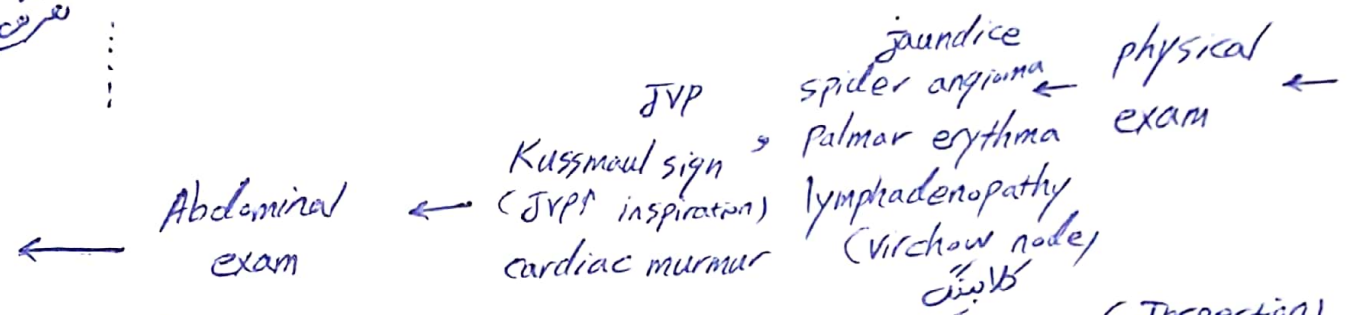 physical
exam
←
jaundice
spider angioma
palmar erythma
lymphadenopathy
(virchow node)
کلابینگ
JVP
Kussmaul sign
(JVP↑ inspiration)
cardiac murmur
Abdominal
exam
(Inspection)